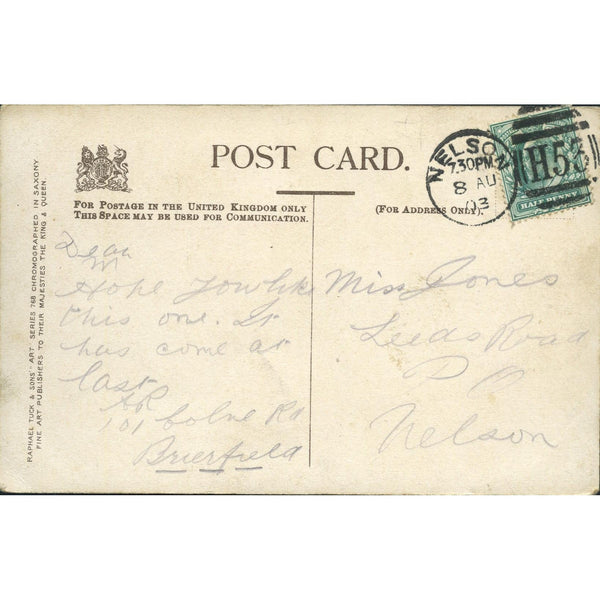 POST CARD.
FOR POSTAGE IN THE UNITED KINGDOM ONLY
THIS SPACE MAY BE USED FOR COMMUNICATION.
(FOR ADDRESS ONLY).
NELSON
7.30PM
8 AU
03
H53
HALF PENNY
RAPHAEL TUCK & SONS' "ART" SERIES 768 CHROMOGRAPHED IN SAXONY.
FINE ART PUBLISHERS TO THEIR MAJESTIES THE KING & QUEEN.
Dear
M
Hope You like
this one. It
has come at
last
AR
101 Colne Rd
Brierfield
Miss Jones
Leeds Road
P O
Nelson